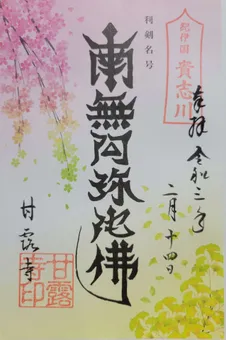 奉拝 令和三年
二月十四日
紀伊国
貴志川
利剣名号
南無阿弥陀佛
甘露寺
甘露
寺印